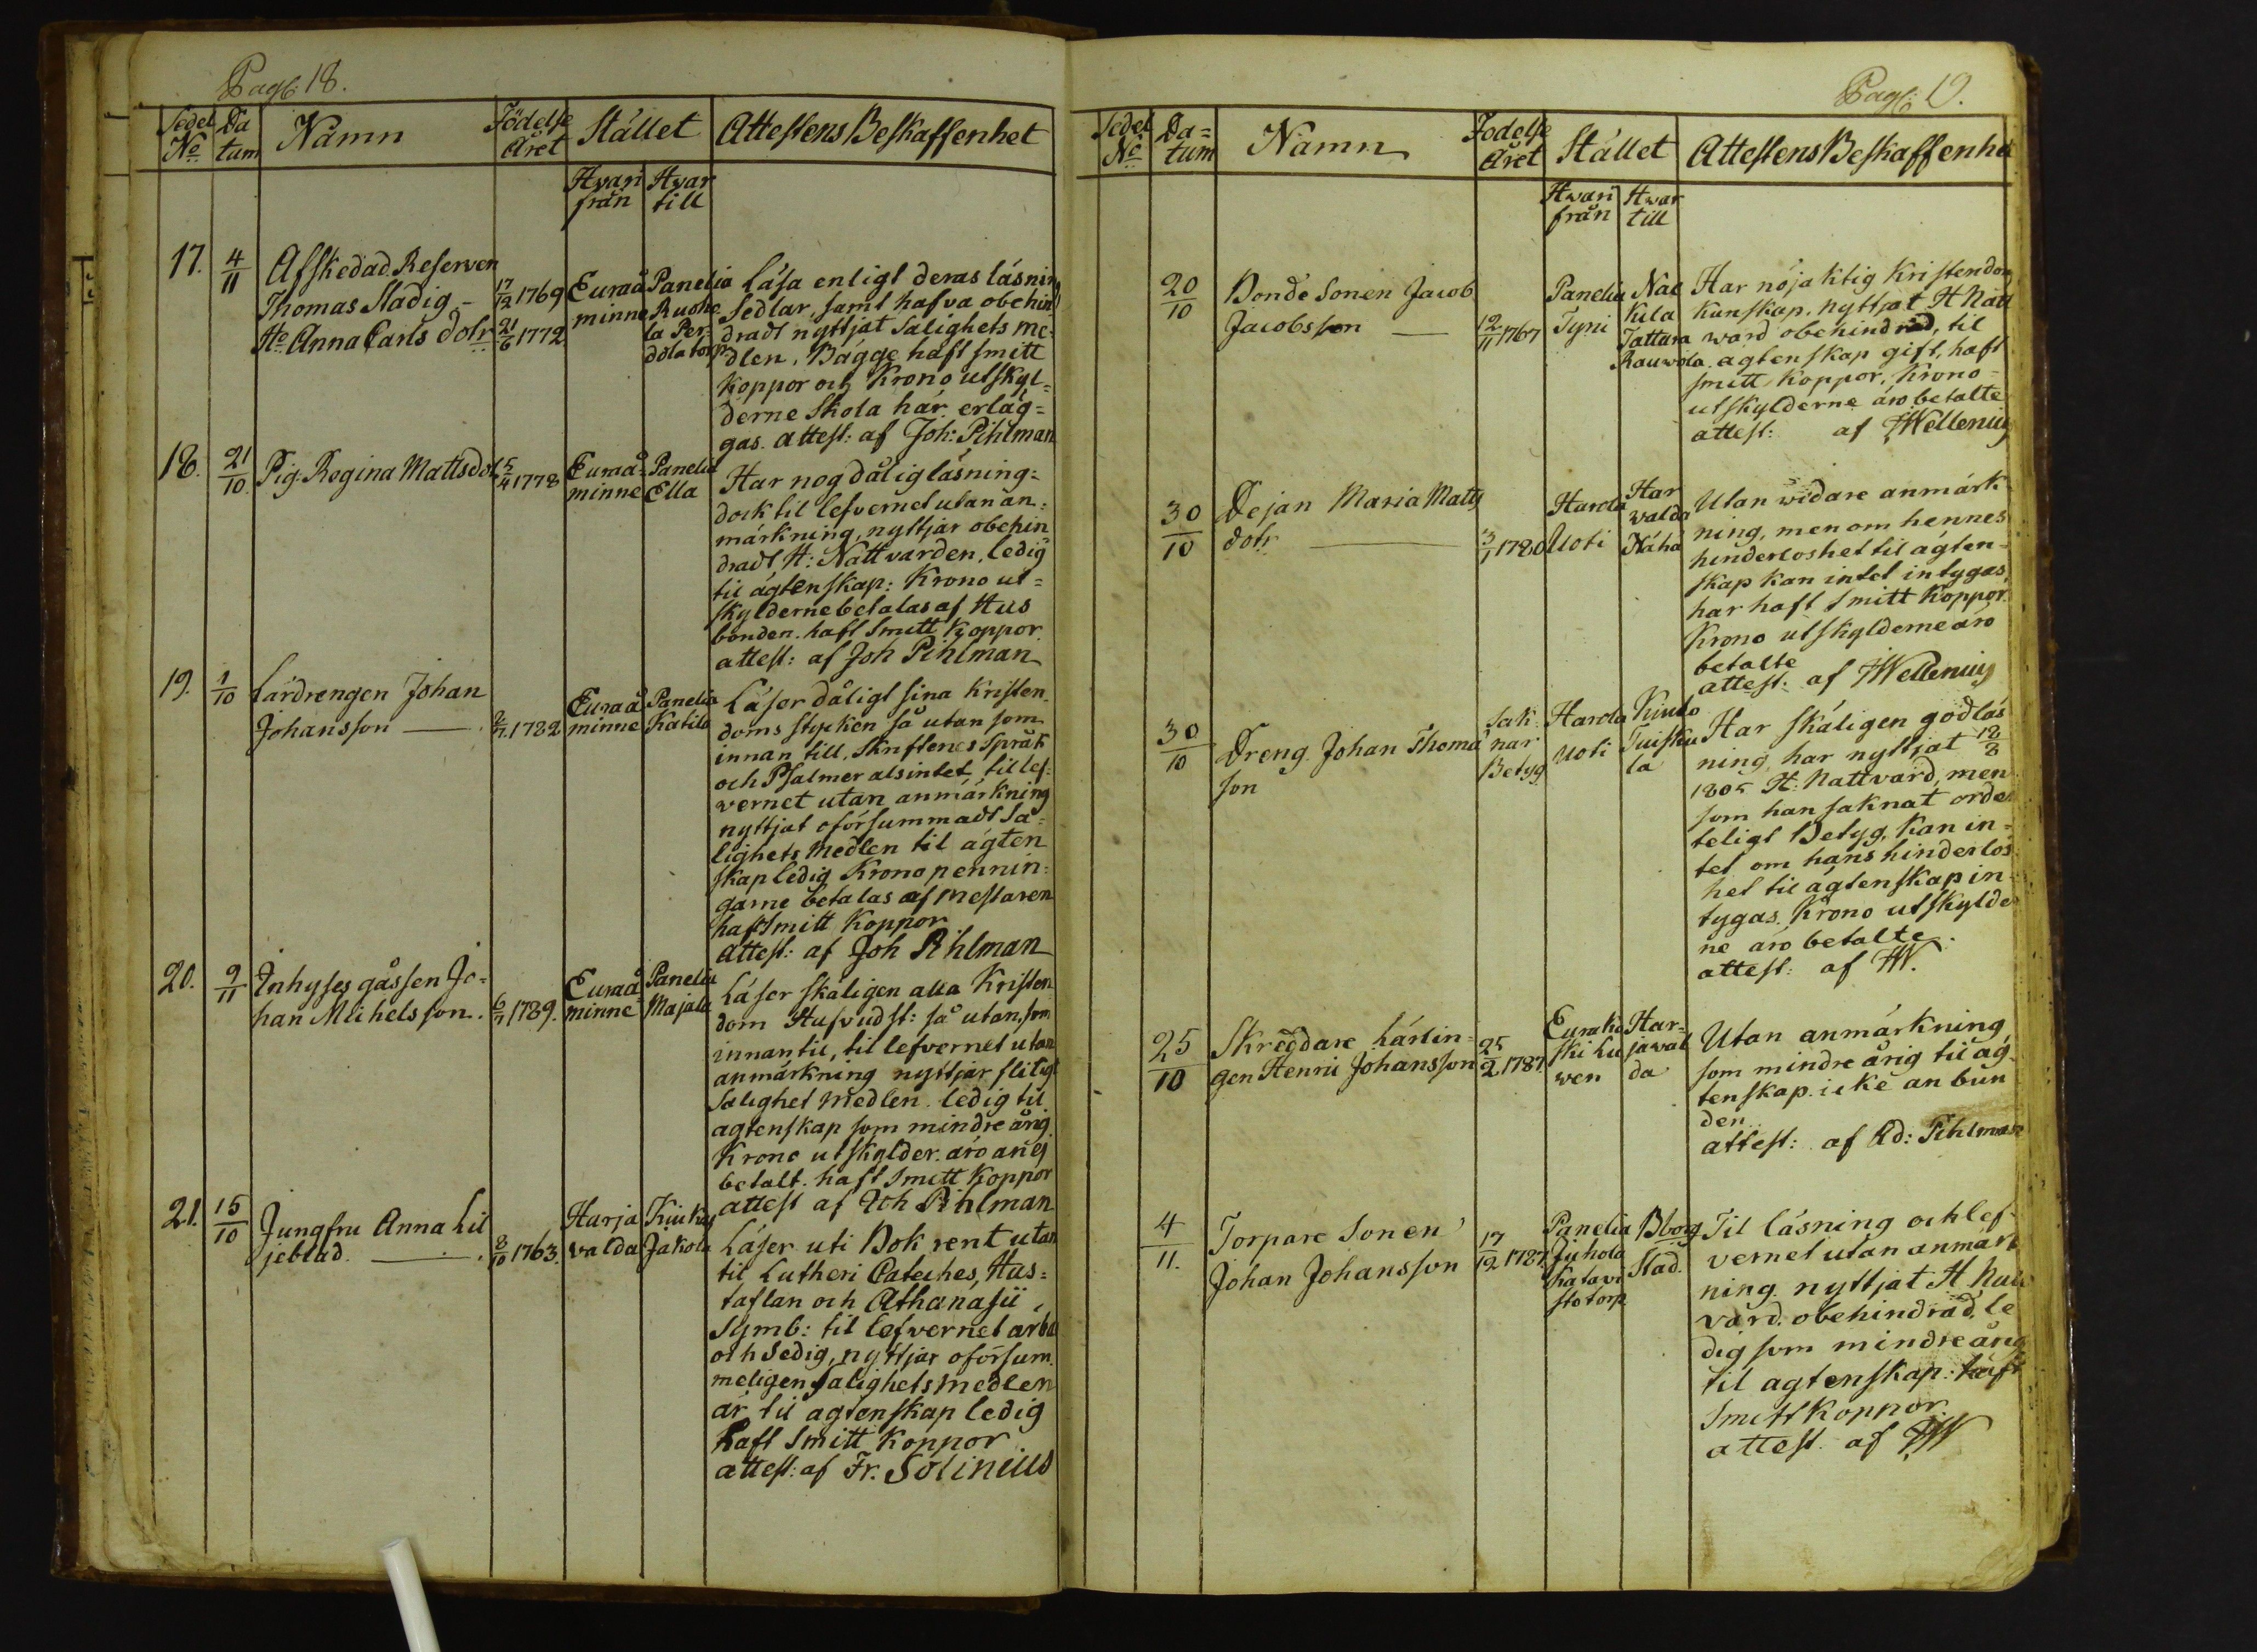 Pag: 18.
Sedel No Datum Namn Födelse Året Stället Attestens Beskaffenhet
Hvari från Hvar till
17. 4/11 Afskedad Reserven
Thomas Stadig – 17/12 1769
Ho Anna Carls dotr 21/6 1772
Euraå
minne
Panelia
Ruoho
la Per-
dola torp
Läsa enligt deras läsning
Sedlar, samt hafva obehin
dradt nyttjat Salighets me-
dlen, Bägge haft smitt
Koppor och Krono utskyl=
derne Skola här erläg=
gas. attest: af Joh: Pihlman
18. 21/10 Pig. Regina Mattsdot 5/4 1778
Euraå
minne
Panelia
Ella
Har nog dålig läsning=
dock til lefvernet utan an=
märkning, nyttjar obehin
dradt H: Nattvarden, ledig
til ägtenskap: Krono ut=
skylderne betalas af Hus
bonden. haft Smitt Koppor.
attest: af Joh Pihlman
19. 1/10 Lärdrengen Johan
Johansson — 2/7. 1782
Euraå
minne
Panelia
Katila
Läser dåligt sina Kristen
doms stycken så utan som
innan till, Skriftenes Språk
och Psalmer alsintet, till lef-
vernet utan anmärkning
nyttjat oförsummadt Sa=
lighets Medlen til ägten
skap ledig Krono pennin=
garne betalas af Mestaren
haft Smitt Koppor
attest: af Joh Pihlman
20. 9/11 Inhyses gåssen Jo=
han Michelsson. 6/7 1789.
Euraå
minne
Panelia
Majala
Läser skäligen alla Kristen
dom Hufvudst: så utan, som
innantil, til lefvernet utan
anmärkning nyttjar flitigt
Salighet Medlen. ledig til
agtenskap som mindre årig.
Krono utskylder. äro än ej
betalt. haft Smitt Koppor
attest af Joh Pihlman
21. 15/10 Jungfru Anna Lil
jeblad. — 8/10 1763.
Harja
valda
Kiukas
Jakola
Läser uti Bok rent utan
til Lutheri Cateches, Hus=
taflan och Athanasii
Symb: til lefvernet arba
och Sedig, nyttjar oförsum
meligen Salighetsmedlen
är til agtenskap ledig
haft Smitt Koppor
attest: af Fr. Solinius
Pag: 19.
Sedel No Da=tum Namn Födelse Året Stället Attestens Beskaffenhet
Hvari från Hvar till
20/10 Bonde Sonen Jacob
Jacobsson — 12/11 1767
Panelia
Tyni
Nac
kila
Tattara
Rauwola
Har nöjaktig Kristendom
kunskap, nyttjat H Natt
ward obehindrad, til
agtenskap gift, haft
smitt koppor, Krono-
utskylderne äro betalte
attest: af JWellenius
30/10 Dejan Maria Matts
dotr — 3/1 1780
Harola
Uoti
Har
walda
Näha
Utan widare anmärk
ning, men om hennes
hinderloshet til ägten-
skap kan intet intygas,
har haft Smitt Koppor.
Krono utskylderne äro
betalte
attest: af JWellenius
30/10 Dreng Johan Thoma
son
Sak
nar
Betyg
Harola
Uoti
Kiulo
Tuisku
la
Har skäligen god läs
ning, har nyttjat 18/8
1805 H: Nattvard, men
som han saknat orde
teligt Betyg, kan in-
tet om hans hinderlos
het til ägtenskap in-
tygas. Krono utskylde
ne äro betalte.
attest: af JW.
25/10 Skreddare Lärlin=
gen Henric Johansson 25/2 1787.
Eurako
ski Lu
wen
Har=
jawal
da
Utan anmärkning
som mindre årig til äg
tenskap icke an bun
den.
attest: af Ad: Pihlman
4/11. Torpare Sonen
Johan Johansson 17/12 1787.
Panelia
Juhola
Katavi
sto torp
Bborg
Stad.
Til läsning och lef-
vernet utan anmärk
ning nyttjat H Natt
vard. obehindrad, le
dig som mindre årig
til agtenskap: haft
Smitt Koppor.
attest. af JW